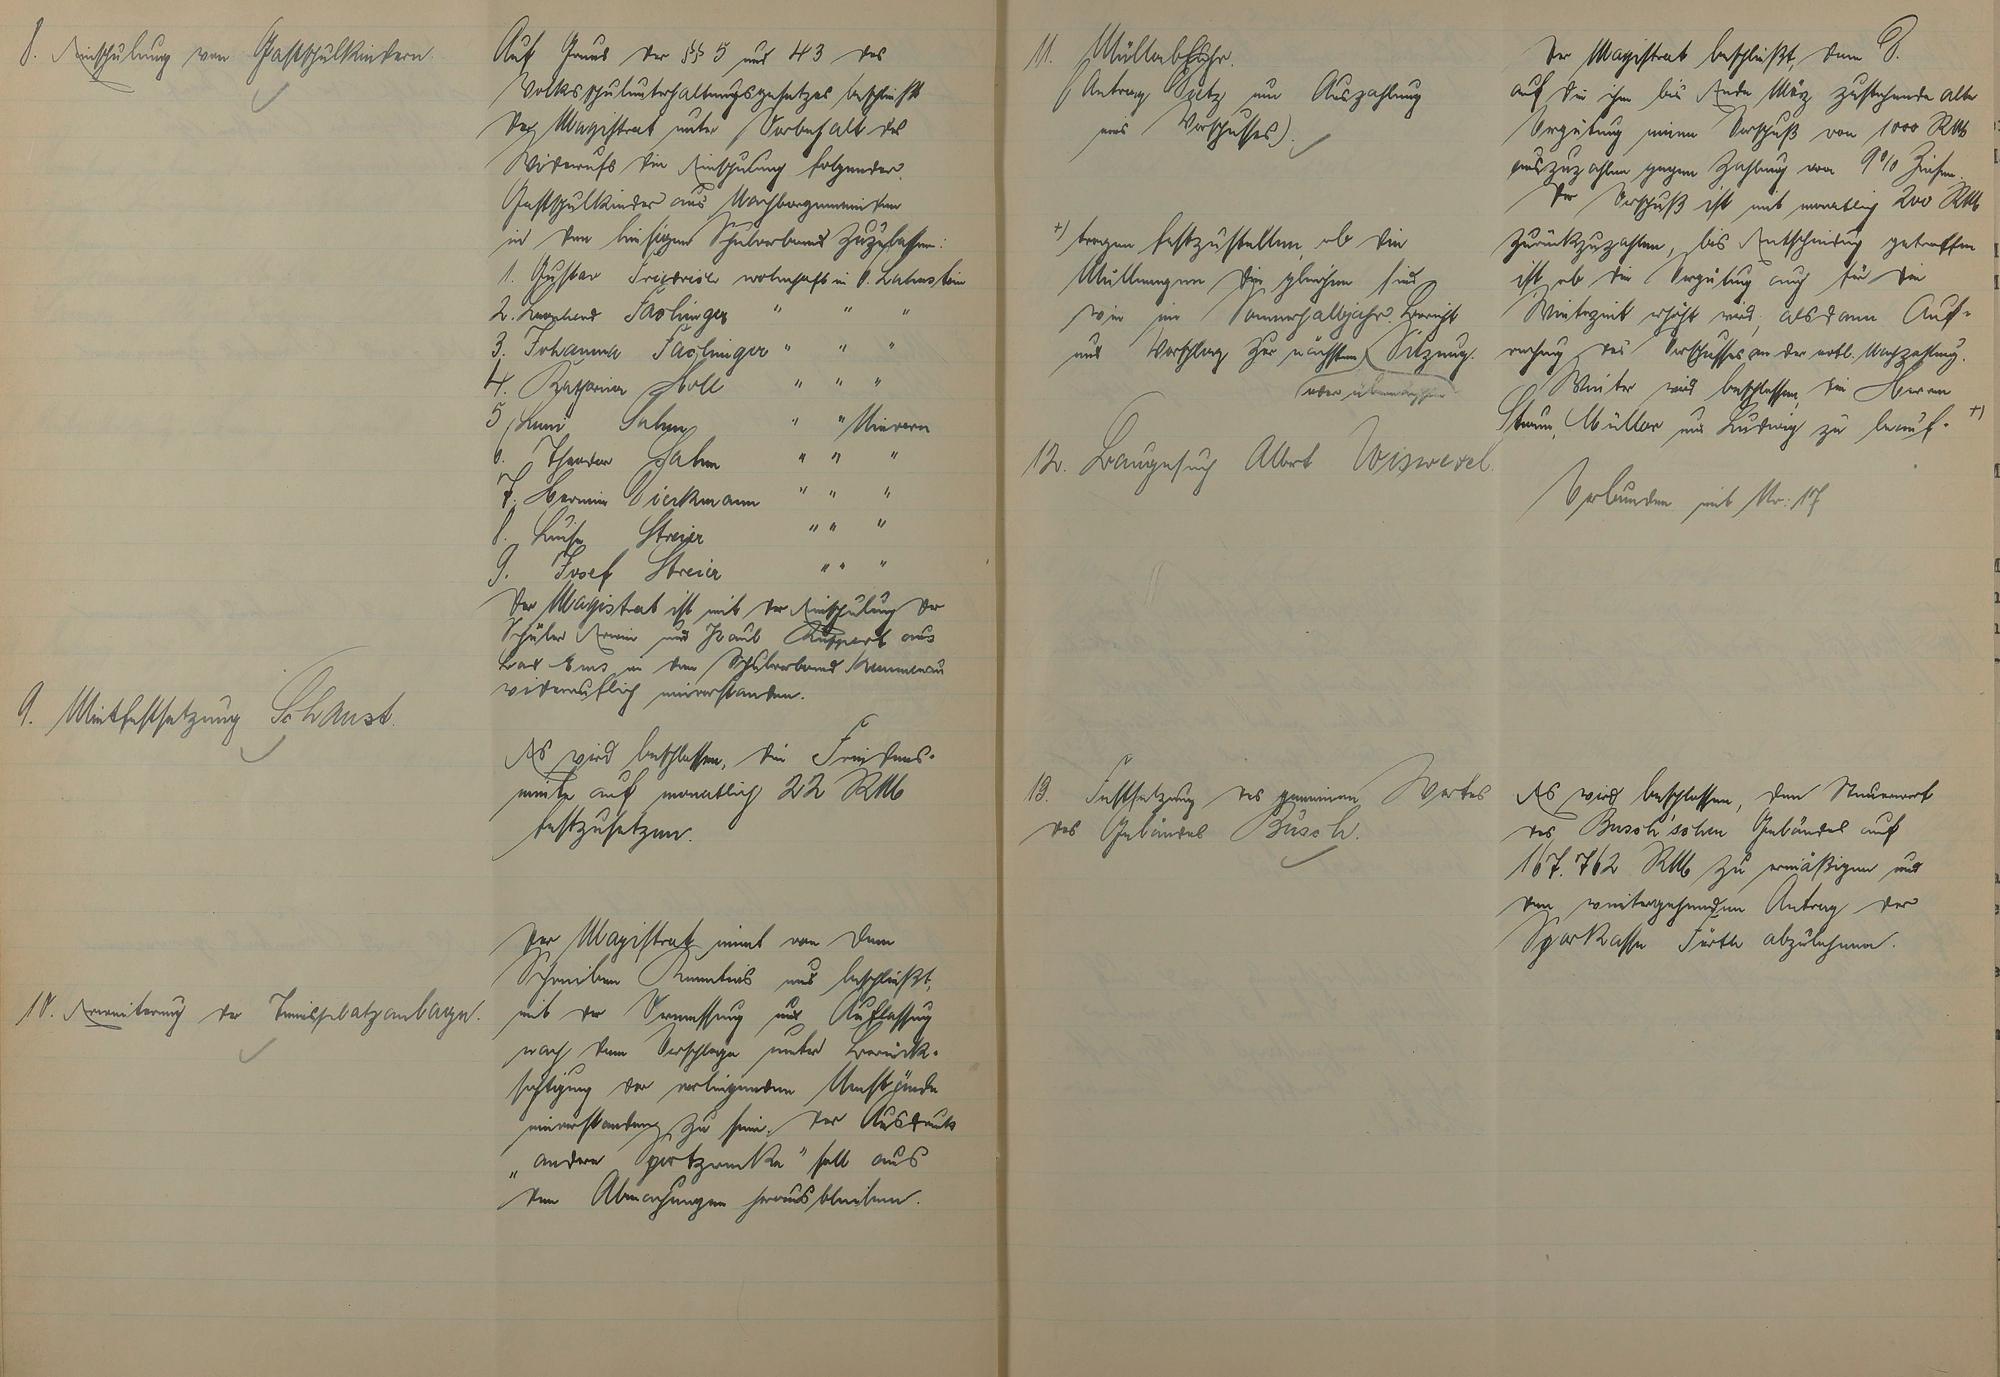 8. Einschulung von Gastschulkindern.
Auf Grund der §§ 5 und 43 des
Volksschulunterhaltungsgesetzes beschließt
der Magistrat unter Vorbehalt des
Widerrufs die Einschulung folgender
Gastschulkinder aus Nachbargemeinden
in den hiesigen Schulverband zuzulassen:
1. Gustav Friedrich wohnhaft in O. Lahnstein
2. Fachinger " " "
3. Johanna Fachinger " " "
4. Katharina Holl " " "
5. Salm " " Miellen
6. Theodor Salm " " "
7. Hermin Dieckmann " " "
8. Luise Streier " " "
9. Josef Streier " " "
Der Magistrat ist mit der Einschulung der
Schüler Erwin und Paul Ruppert aus
Bad Ems in den Schulverband Kemmenau
widerruflich einverstanden.
9. Mietfestsetzung Schaust.
Es wird beschlossen, die Friedens-
miete auf monatlich 22 RM
festzusetzen.
10. Erweiterung der Tennisplatzanlagen.
Der Magistrat nimmt von dem
Schreiben Kenntnis und beschließt,
mit der Vermessung und Auflassung
nach dem Vorschlage unter Berück-
sichtigung der vorliegenden Umstände
einverstanden zu sein. Der Ausdruck
"andere Sportzwecke" soll aus
den Abmachungen herausbleiben.
11. Müllabfuhr.
(Antrag um Auszahlung
eines Vorschusses).
Der Magistrat beschließt, dem
auf die ihm bis Ende März zustehende alte
Vergütung einen Vorschuß von 1000 RM
auszuzahlen gegen Zahlung von 9% Zinsen.
Der Vorschuß ist mit monatlich 200 RM
zurückzuzahlen, bis Entscheidung getroffen
ist ob die Vergütung auch für die
Winterzeit erhöht wird, alsdann Auf-
rechnung des Vorschusses an der evtl. Nachzahlung.
Weiter wird beschlossen, die Herren
Müller und Ludwig zu beauf- +)
+) tragen festzustellen, ob die
Müllmengen die gleichen sind
wie im Sommerhalbjahr. Bericht
und Vorschlag zur nächsten Sitzung.
12. Baugesuch Albert
Verbunden mit Nr: 17
13. Festsetzung des gemeinen Wertes
des Gebäudes Busch.
Es wird beschlossen, den Steuerwert
des Busch'schen Gebäudes auf
167.762 RM zu ermäßigen und
den weitergehenden Antrag der
Sparkasse Fürth abzulehnen.